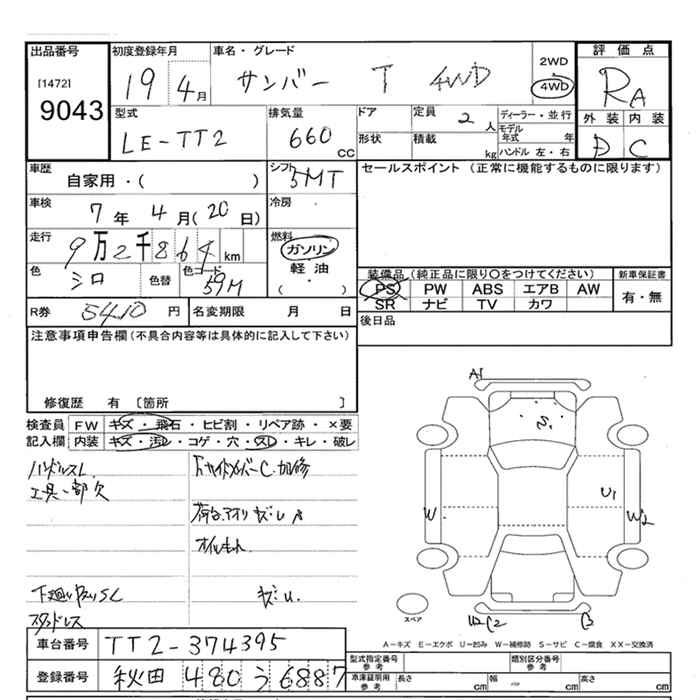 出品番号 初度登録年月 車名・グレード 評価点
[1472] 9043
19 4月 サンバー T 4WD
2WD
4WD
RA
型式 排気量 ドア 定員 2人 ディーラー・並行 外装 内装
LE-TT2 660cc 形状 積載 kg モデル年式 年
ハンドル 左・右
D C
車歴 シフト セールスポイント (正常に機能するものに限ります)
自家用・( ) 5MT
車検 7年 4月(20日) 冷房
走行 9万2千864km 燃料 ガソリン
軽油
・( )
色 シロ 色替 色コード 59M
装備品 (純正品に限り○をつけてください) 新車保証書
PS PW ABS エアB AW 有・無
SR ナビ TV カワ
R券 5410円 名変期限 月 日 後日品
注意事項申告欄 (不具合内容等は具体的に記入して下さい)
修復歴 有 [箇所 ]
検査員 FW キズ・飛石・ヒビ割・リペア跡・×要
記入欄 内装 キズ・汚レ・コゲ・穴・スレ・キレ・破レ
ハンドルスレ
工具一部欠
荷台アオリ キズ・レ
キズU.
スタッドレス
A1
S
U1
W
W2
U2 C2
B
スペア
A-キズ E-エクボ U-凹み W-補修跡 S-サビ C-腐食 XX-交換済
車台番号 TT2-374395
登録番号 秋田 480 う 6887
型式指定番号 参考 類別区分番号 参考
車庫証明用 参考 長さ cm 幅 cm 高さ cm